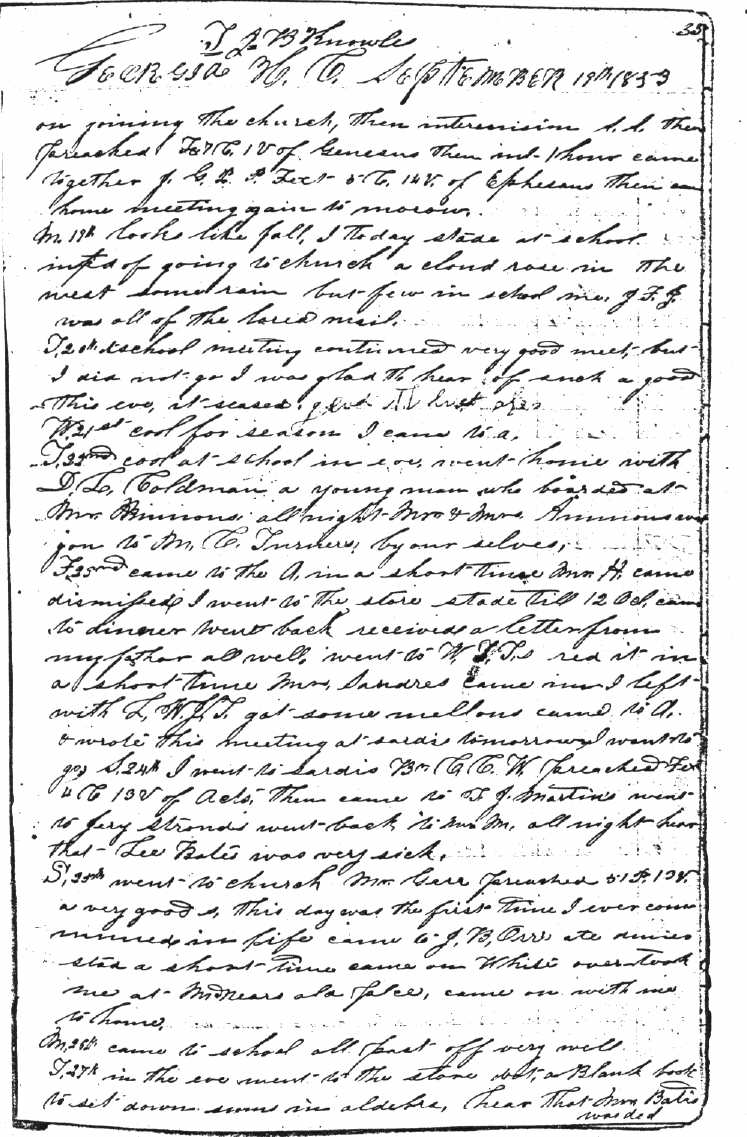 35
T J B Knowls
GEORGIA H. C. SEPTEMBER 19th 1853
on joining the church, then intermision S.S. then
preached Tx 7 C. 1 V of Genesus then int- 1 hour came
together J. G. P. Text 5 C. 14 V. of Ephesans then
home meeting again to morow,
M. 19th looks like fall, I to day stade at school
insted of going to church a cloud rose in the
west some rain but few in school me, J F. J.
was all of the lared mail.
T, 20th school meeting continued very good meet, but
I did not go I was glad to hear of such a good
this eve, it seased.
W. 21st cool for season I came to a.
T, 22nd cool at school in eve, went home with
D. L. Coldman, a young man who boarded at
Mr. Ammons, all night Mr. & Mrs. Ammons
gon to M, C. Turners, by our selves,
F. 23nd came to the A, in a short time Mr. H. came
dismissed I went to the store stade till 12 Oc, came
to dinner went back received a letter from
my father all well, went to W, J, T,s red it in
a short time Mrs, Sandres came in I left
with L. W. J. T. got some mellons came to A.
& wrote this meeting at sardis tomorrow I want to
go, S. 24th I went to sardis Br. C. C. W. preached Tex
4 C 13 V of Acts, then came to T. J. Martins went
to Jery Strouds went back to Mr M. all night hear
that Lee Bates was very sick,
S, 25th went to church Mr. Gerr preached 5 1 P. 1 3 V.
a very good s, this day was the first time I ever com
muned in life came to J, B, Orrs ate diner
stad a short time came on White over took
me at McNears old place, came on with me
to home,
M, 26th came to school all past off very well
T, 27th in the eve went to the store bot, a Blank book
to set down sums in aldebra, hear that Mrs, Batis
was ded